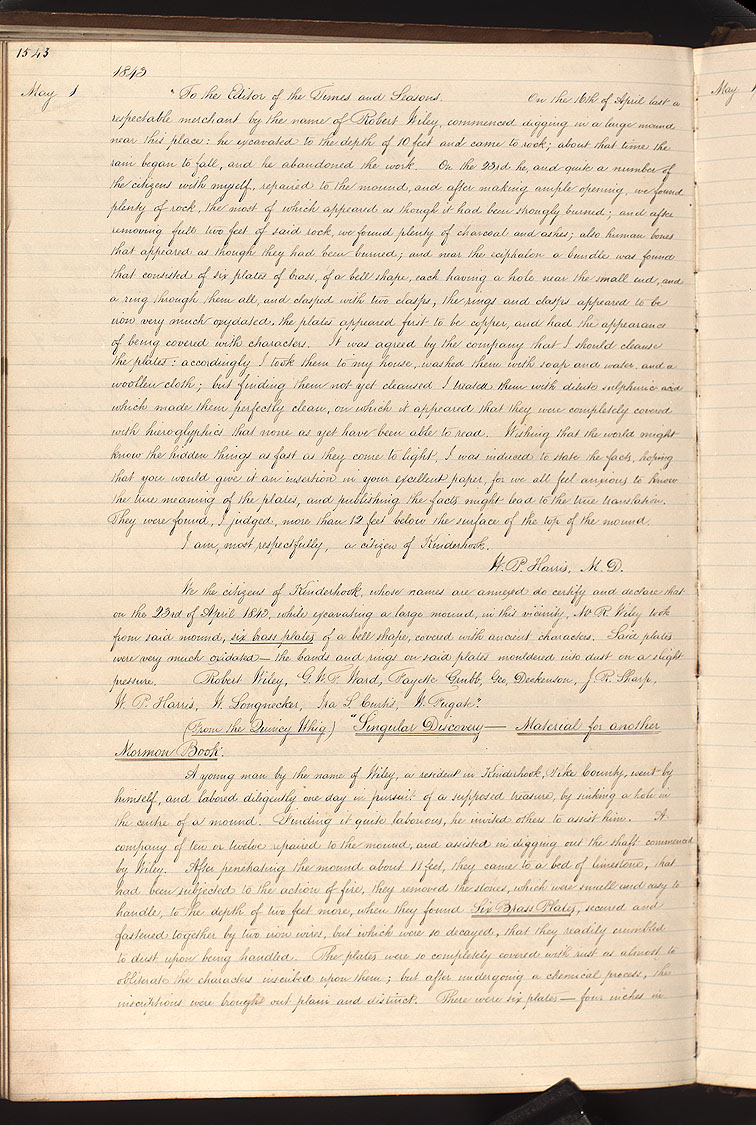 1543
1843
May 1 "To the Editor of the Times and Seasons. On the 16th of April last a
respectable merchant by the name of Robert Wiley, commenced digging in a large mound
near this place: he excavated to the depth of 10 feet and came to rock; about that time the
rain began to fall, and he abandoned the work. On the 23rd he, and quite a number of
the citizens with myself, repaired to the mound, and after making ample opening, we found
plenty of rock, the most of which appeared as though it had been strongly burned; and after
removing full two feet of said rock, we found plenty of charcoal and ashes; also human bones
that appeared as though they had been burned; and near the eciphalon a bundle was found
that consisted of six plates of brass, of a bell shape, each having a hole near the small end, and
a ring through them all, and clasped with two clasps, the rings and clasps appeared to be
iron very much oxydated, the plates appeared first to be copper, and had the appearance
of being covered with characters. It was agreed by the company that I should cleanse
the plates: accordingly I took them to my house, washed them with soap and water, and a
woollen cloth; but finding them not yet cleansed I treated them with dilute sulphuric acid
which made them perfectly clean, on which it appeared that they were completely covered
with hieroglyphics that none as yet have been able to read. Wishing that the world might
know the hidden things as fast as they come to light, I was induced to state the facts, hoping
that you would give it an insertion in your excellent paper, for we all feel anxious to know
the true meaning of the plates, and publishing the facts might lead to the true translation.
They were found, I judged, more than 12 feet below the surface of the top of the mound.
I am, most respectfully, a citizen of Kinderhook.
W. P. Harris, M. D.
We the citizens of Kinderhook, whose names are annexed do certify and declare that
on the 23rd of April 1843, while excavating a large mound, in this vicinity, Mr R. Wiley took
from said mound, six brass plates of a bell shape, covered with ancient characters. Said plates
were very much oxidated — the bands and rings on said plates mouldered into dust on a slight
pressure. Robert Wiley, G. W. F. Ward, Fayette Grubb, Geo. Deckenson, J. R. Sharp,
W. P. Harris, W. Longnecker, Ira S. Curtis, W. Fugate."
(From the Quincy Whig) "Singular Discovery — Material for another
Mormon Book.
A young man by the name of Wiley, a resident in Kinderhook, Pike County, went by
himself, and labored diligently one day in pursuit of a supposed treasure, by sinking a hole in
the centre of a mound. Finding it quite laborious, he invited others to assist him. A
company of ten or twelve repaired to the mound, and assisted in digging out the shaft commenced
by Wiley. After penetrating the mound about 11 feet, they came to a bed of limestone, that
had been subjected to the action of fire, they removed the stones, which were small and easy to
handle, to the depth of two feet more, when they found Six Brass Plates, secured and
fastened together by two iron wires, but which were so decayed, that they readily crumbled
to dust upon being handled. The plates were so completely covered with rust as almost to
obliterate the characters inscribed upon them; but after undergoing a chemical process, the
inscriptions were brought out plain and distinct. There were six plates — four inches in
May 1